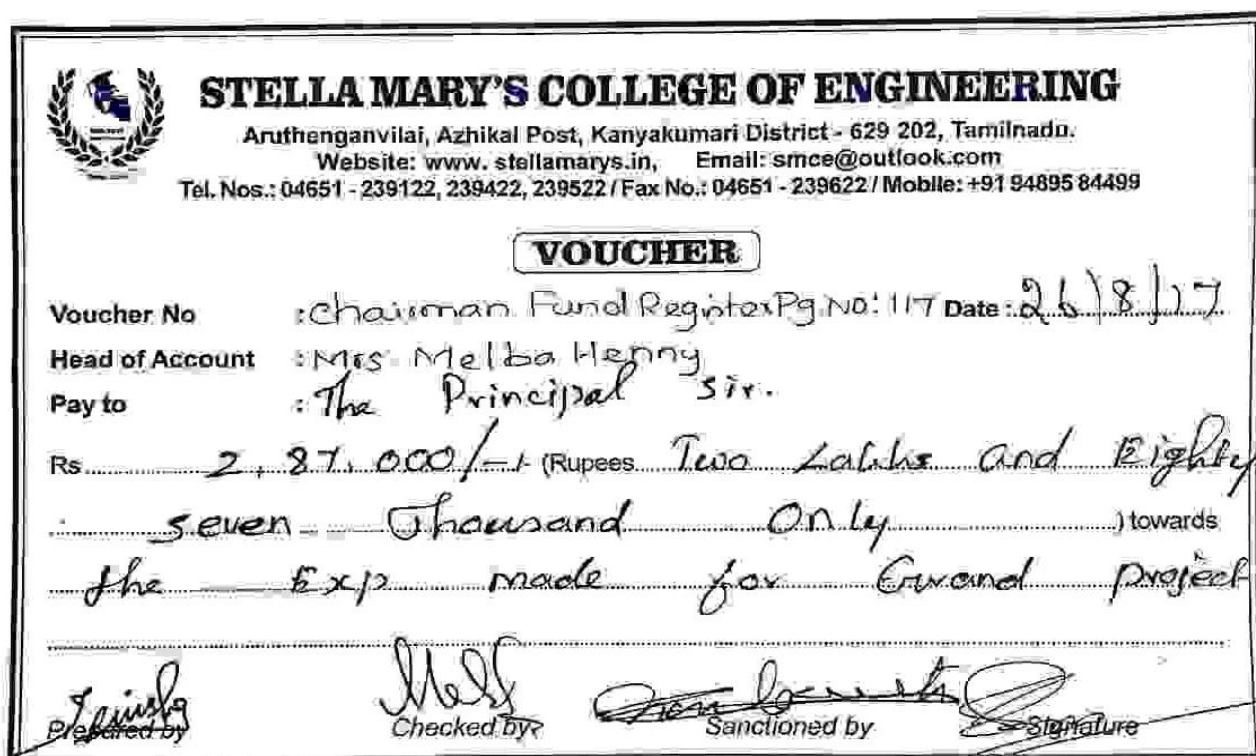 STELLA MARY'S COLLEGE OF ENGINEERING
Aruthenganvilai, Azhikal Post, Kanyakumari District - 629 202, Tamilnadu.
Website: www. stellamarys.in, Email: smce@outlook.com
Tel. Nos.: 04651 - 239122, 239422, 239522 / Fax No.: 04651 - 239622 / Mobile: +91 94895 84499
VOUCHER
Voucher No : Chairman Fund Register Pg. No: 117 Date : 26/8/17
Head of Account : Mrs Melba Henny
Pay to : The Principal Sir.
Rs 2,87,000/-/- (Rupees Two Lakhs and Eighty
seven Thousand Only ) towards
the Exp made for project
Prepared by Checked by Sanctioned by Signature